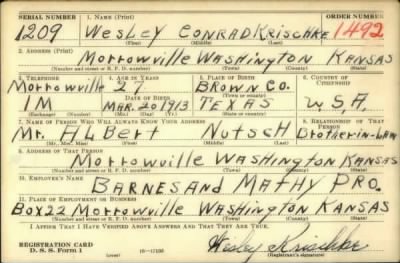 SERIAL NUMBER 1. Name (Print) ORDER NUMBER
1209 WESLEY CONRAD KRISCHKE 1492
(First) (Middle) (Last)
2. Address (Print)
MORROWVILLE WASHINGTON KANSAS
(Number and street or R. F. D. number) (Town) (County) (State)
3. Telephone 4. Age in Years 5. Place of Birth 6. Country of Citizenship
Morrowville 27 BROWN CO.
Date of Birth (Town or county)
1M MAR. 20 1913 TEXAS U.S.A.
(Exchange) (Number) (Mo.) (Day) (Yr.) (State or country)
7. Name of Person Who Will Always Know Your Address 8. Relationship of That Person
Mr. ALBERT NUTSCH Brother in-LAW
(Mr., Mrs., Miss) (First) (Middle) (Last)
9. Address of That Person
MORROWVILLE WASHINGTON KANSAS
(Number and street or R. F. D. number) (Town) (County) (State)
10. Employer's Name
BARNES AND MATHY PRO.
11. Place of Employment or Business
BOX 22 MORROWVILLE WASHINGTON KANSAS
(Number and street or R. F. D. number) (Town) (County) (State)
I Affirm That I Have Verified Above Answers and That They Are True.
REGISTRATION CARD
D. S. S. Form 1 Wesley Krischke
(Registrant's signature)